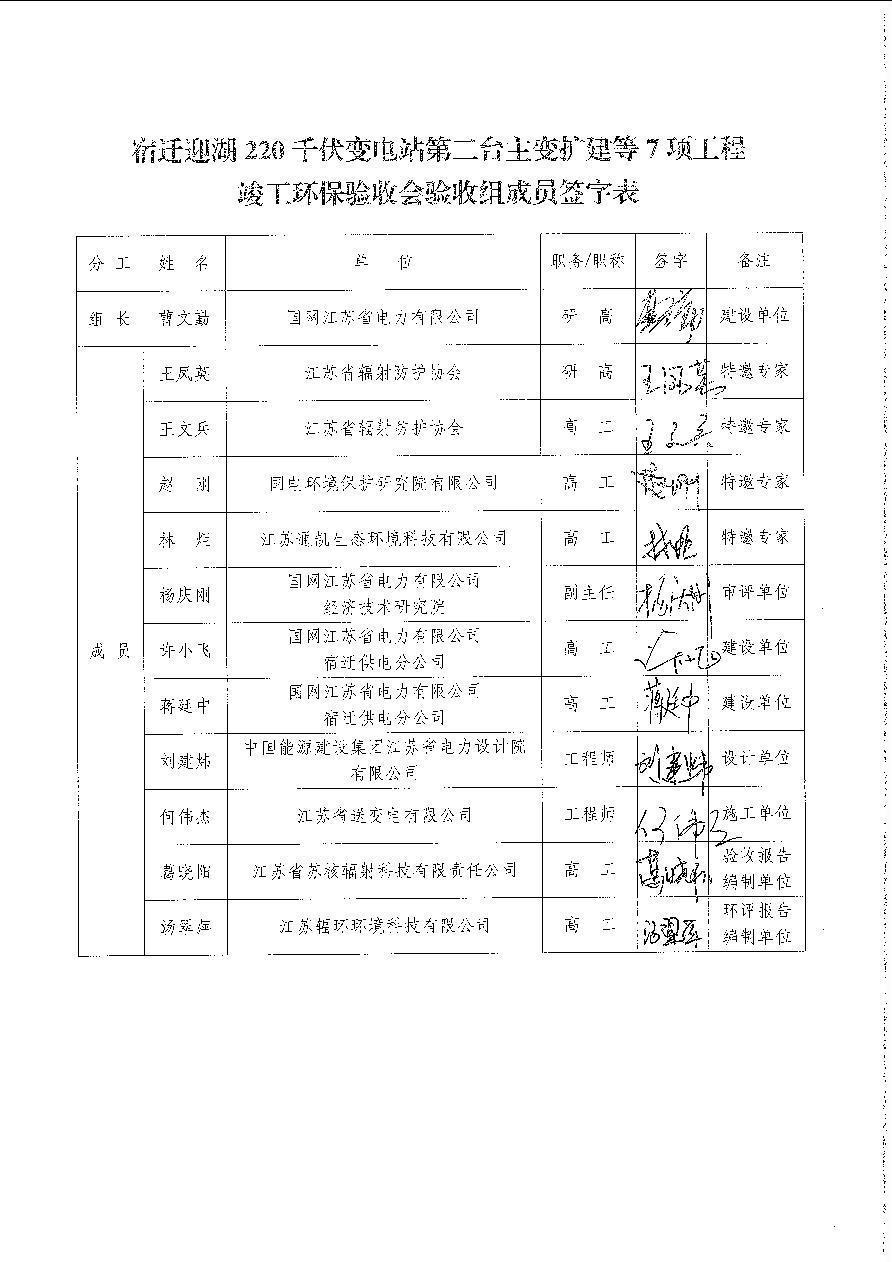 宿迁迎湖220千伏变电站第二台主变扩建等7项工程
竣工环保验收会验收组成员签字表
分 工 姓 名 单 位 职务/职称 签字 备注
组 长 曹文勤 国网江苏省电力有限公司 研 高 建设单位
王凤英 江苏省辐射防护协会 研 高 特邀专家
王文兵 江苏省辐射防护协会 高 工 王文兵 特邀专家
赵 刚 国电环境保护研究院有限公司 高 工 特邀专家
林 江苏通凯生态环境科技有限公司 高 工 特邀专家
杨庆刚 国网江苏省电力有限公司
经济技术研究院 副主任 审评单位
成 员 许小飞 国网江苏省电力有限公司
宿迁供电分公司 高 工 建设单位
蒋廷中 国网江苏省电力有限公司
宿迁供电分公司 高 工 蒋廷中 建设单位
刘建炜 中国能源建设集团江苏省电力设计院
有限公司 工程师 刘建炜 设计单位
何伟杰 江苏省送变电有限公司 工程师 何伟杰 施工单位
葛晓阳 江苏省苏核辐射科技有限责任公司 高 工 葛晓阳 验收报告
编制单位
汤翠萍 江苏辐环环境科技有限公司 高 工 环评报告
编制单位